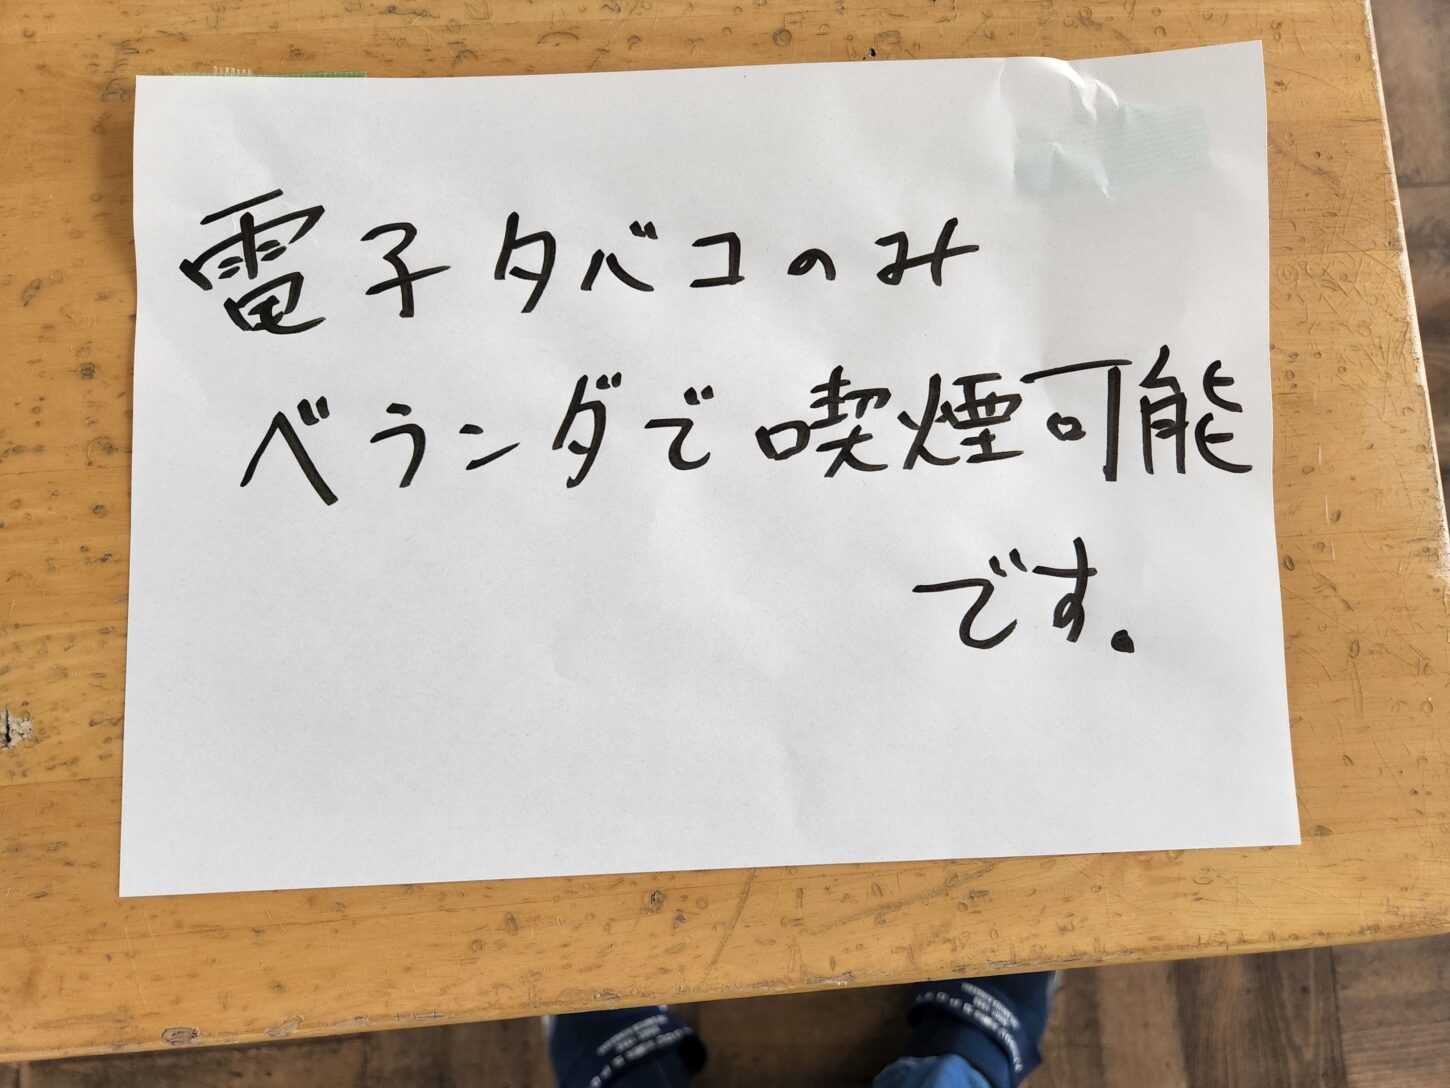 電子タバコのみ
ベランダで喫煙可能
です.